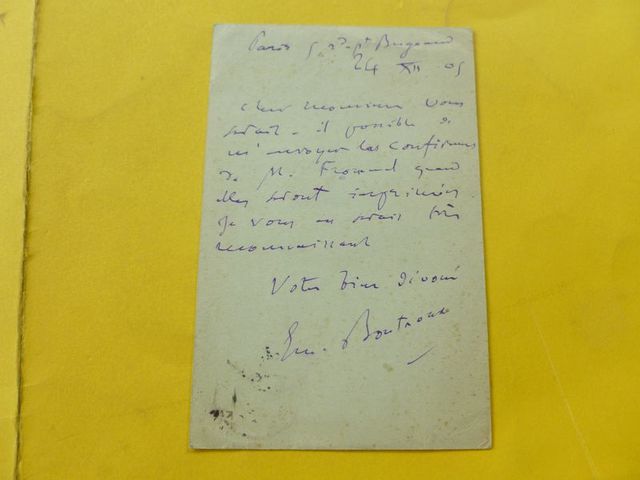 Paris 5 rd-pt Bugeaud
24 XII 05
Cher monsieur Vous
serait-il possible de
m'envoyer les Conférences
de M. quand
elles seront imprimées
Je vous en serais très
reconnaissant
Votre bien dévoué
Em. Boutroux